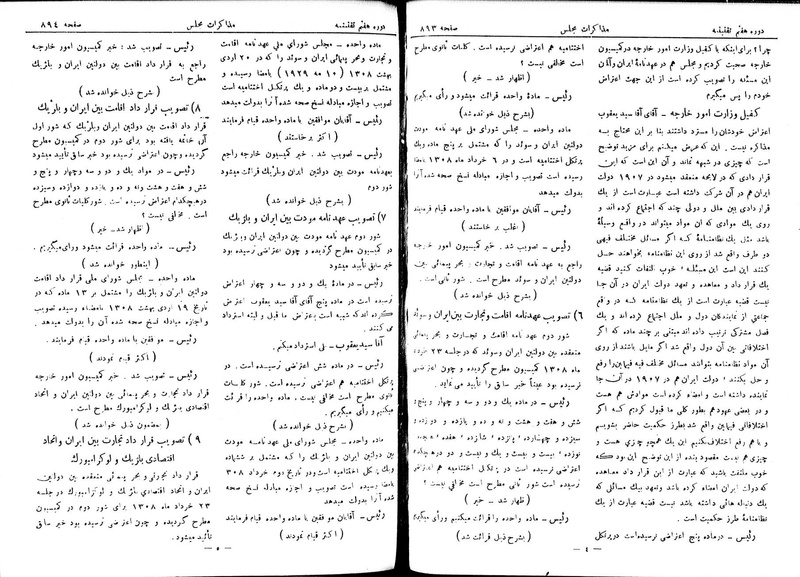 دوره هفتم تقنینیه
مذاکرات مجلس
صفحه ۸۹۳
چرا؟ برای اینکه با کفیل وزارت امور خارجه در کمیسیون
خارجه صحبت کردیم و مجلس هم در عهدنامه ایران و آلمان
این مسئله را تصویب کرده است از این جهت اعتراض
خودم را پس میگیرم
کفیل وزارت امور خارجه ـ آقای آقا سید یعقوب
اعتراض خودشان را مسترد داشتند بنا بر این محتاج به
مذاکره نیست. این که عرض میکنم برای مزید توضیح
است که چیزی در شبهه نماند و آن این است که این
قرار دادی که در لاهه منعقد میشود در ۱۹۰۷ دولت
ایران هم در آن شرکت داشته است عبارت است از یك
قرار دادی بین ملل و دولی چند که اجتماع کرده اند و
روی یك موادی که آن مواد میتواند در واقع وسیلهٔ
باشد مثل یك نظامنامهٔ که اگر مسائل مختلف فیهی
در طرف واقع شد از روی این نظامنامه بخواهند حل
کنند این است این مسئله؛ خوب التفات کنید قضیه
یك قرار داد و معاهده و تعهد دولت ایران در آن جا
نیست قضیه عبارت است از یك نظامنامه که در واقع
جماعتی از نمایندگان دول و ملل اجتماع کرده اند و یك
فصل مشترکی ترتیب داده اند مبتنی بر چند ماده که اگر
اختلافاتی بین آن دول واقع شد اگر مایل باشند از روی
آن مواد نظامنامه بتوانند مسائل مختلف فیه فیمابین را رفع
و حل بکنند؛ دولت ایران هم در ۱۹۰۷ در آن جا
نماینده داشته است و امضاء کرده است موادش هم هست
و در بعضی عهود هم بطور کلی ما قبول کردیم که اگر
اختلافاتی فیمابین واقع شد بطرز حکمیت حاضر بشویم
و با هم رفع اختلاف کنیم این یك همچو چیزی هست و
چیزی هم نیست مقصود بنده از این توضیح این بود که
خوب ملتفت باشید که عبارت از این قرار داد معاهده
که دولت ایران امضاء کرده باشد و تعهد بیك مسائلی که
یك دنباله هائی داشته باشد نیست قضیه عبارت از یك
نظامنامهٔ طرز حکمیت است.
رئیس ـ در ماده پنج اعتراضی نرسیده است در پرتکل
اختتامیه هم اعتراضی نرسیده است. کلیات ثانوی مطرح
است مخالفی نیست؟
(اظهار شد ـ خیر)
رئیس ـ مادهٔ واحده قرائت میشود و رأی میگیریم
(بشرح ذیل خوانده شد)
ماده واحده ـ مجلس شورای ملی عهد نامه مودت
بین دولتین ایران و سوئد را که مشتمل بر پنج ماده و یك
پرتکل اختتامیه است و در ۶ خرداد ماه ۱۳۰۸ امضا
رسیده است تصویب و اجازه مبادله نسخ صحه شده آنرا
بدولت میدهد
رئیس ـ آقایان موافقین با ماده واحده قیام فرمایند
(اغلب بر خاستند)
رئیس ـ تصویب شد. خبر کمیسیون امور خارجه
راجع به عهد نامه اقامت و تجارت و بحر پیمائی بین
ایران و سوئد مطرح است. شور ثانی است.
(بشرح ذیل خوانده شد)
۶) تصویب عهدنامه اقامت و تجارت بین ایران و سوئد
شور دوم عهد نامه اقامت و تجارت و بحر پیمائی
منعقده بین دولتین ایران و سوئد که در جلسه ۲۳ خرداد
ماه ۱۳۰۸ کمیسیون مطرح گردیده و چون اعتراضی
نرسیده بود عیناً خبر سابق را تأیید می نماید.
رئیس ـ در ماده یك و دو و سه و چهار و پنج و
شش و هفت و هشت و نه و ده و یازده و دوازده و
سیزده و چهارده، پانزده، شانزده، هفده، هیجده،
نوزده، بیست و بیست و یك و بیست و دو و در پرتکل
اعتراضی نرسیده است در پرتکل اختتامیه هم اعتراض
نرسیده است شور ثانی مطرح است مخالفی نیست؟
(اظهار شد ـ خیر)
رئیس ـ ماده واحده را قرائت میکنیم و رأی میگیریم
(بشرح ذیل قرائت شد)
ـ ٤ ـ
دوره هفتم تقنینیه
مذاکرات مجلس
صفحه ۸۹٤
ماده واحده ـ مجلس شورای ملی عهدنامه اقامت
و تجارت و بحر پیمائی ایران و سوئد را که در ۲۰ اردی
بهشت ۱۳۰۸ (۱۰ مه ۱۹۲۹) بامضا رسیده و
مشتمل بر بیست و دو ماده و یك پرتکل اختتامیه است
تصویب و اجازه مبادله نسخ صحه شده آنرا بدولت میدهد
رئیس ـ آقایان موافقین با ماده واحده قیام فرمایند
(اکثر بر خاستند)
رئیس ـ تصویب شد. خبر کمیسیون خارجه راجع
بعهدنامه مودت بین دولتین ایران و بلژیك قرائت میشود
شور دوم
(بشرح ذیل خوانده شد)
۷) تصویب عهدنامه مودت بین ایران و بلژیك
شور دوم عهد نامه مودت بین دولتین ایران و بلژیك
در کمیسیون مطرح گردیده و چون اعتراضی نرسیده بود
خبر سابق تأیید میشود
رئیس ـ در ماده یك و دو و سه و چهار اعتراض
نرسیده است در ماده پنج آقای آقا سید یعقوب اعتراض
کرده اند که شبیه است باعتراض ما قبل و البته استرداد
می کنند.
آقا سید یعقوب ـ بلی استرداد میکنم.
رئیس ـ در ماده شش اعتراضی نرسیده است. در
پرتکل اختتامیه هم اعتراضی نرسیده است. شور کلیات
ثانوی مطرح است مخالفی نیست. ماده واحده را قرائت
میکنیم و رأی میگیریم.
(بشرح ذیل خوانده شد)
ماده واحده ـ مجلس شورای ملی عهد نامه مودت
بین دولتین ایران و بلژیك را که مشتمل بر شش ماده
و یك پرتکل اختتامیه است و در تاریخ دوم خرداد ۳۰۸
بامضا رسیده است تصویب و اجازه مبادله نسخ صحه
شده آنرا بدولت میدهد
رئیس ـ آقایان موافقین با ماده واحده قیام فرمایند
(اکثر قیام نمودند)
رئیس ـ تصویب شد؛ خبر کمیسیون امور خارجه
راجع به قرار داد اقامت بین دولتین ایران و بلژیك
مطرح است
(شرح ذیل خوانده شد)
۸) تصویب قرار داد اقامت بین ایران و بلژیك
قرار داد اقامت بین دولتین ایران و بلژیك که شور اول
آن خاتمه یافته بود برای شور دوم در کمیسیون مطرح
گردیده و چون اعتراضی نرسیده بود خبر سابق تأیید میشود
رئیس ـ در مواد یك و دو و سه و چهار و پنج و
شش و هفت و هشت و نه و ده و یازده و دوازده و سیزده
در هیچکدام اعتراضی نرسیده است. شور کلیات ثانوی مطرح
است. مخالفی نیست؟
(اظهار شد ـ خیر)
رئیس ـ ماده واحده قرائت میشود و رأی میگیریم.
(اینطور خوانده شد)
ماده واحده ـ مجلس شورای ملی قرار داد اقامت
دولتین ایران و بلژیك را مشتمل بر ۱۳ ماده که در
تاریخ ۱۹ اردی بهشت ۱۳۰۸ بامضا رسیده تصویب
و اجازه مبادله نسخ صحه شده آن را بدولت میدهد.
رئیس ـ موافقین با ماده واحده قیام فرمایند.
(اکثر قیام نمودند)
رئیس ـ تصویب شد. خبر کمیسیون امور خارجه
قرار داد تجارت و بحر پیمائی بین دولتین ایران و اتحاد
اقتصادی بلژیك و لوکزامبورك مطرح است.
(بمضمون ذیل خوانده شد)
۹) تصویب قرار داد تجارت بین ایران و اتحاد
اقتصادی بلژیك و لوکزامبورك
قرار داد تجارتی و بحر پیمائی منعقده بین دولتین
ایران و اتحاد اقتصادی بلژیك و لوکزامبورك در جلسه
۲۳ خرداد ماه ۱۳۰۸ برای شور دوم در کمیسیون
مطرح گردیده و چون اعتراضی نرسیده بود خبر سابق
تأیید میشود.
ـ ٥ ـ